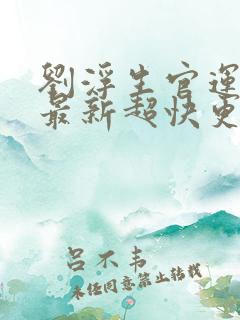 劉浮生官運
最新超快更
呂不韦
未经同意禁止转载